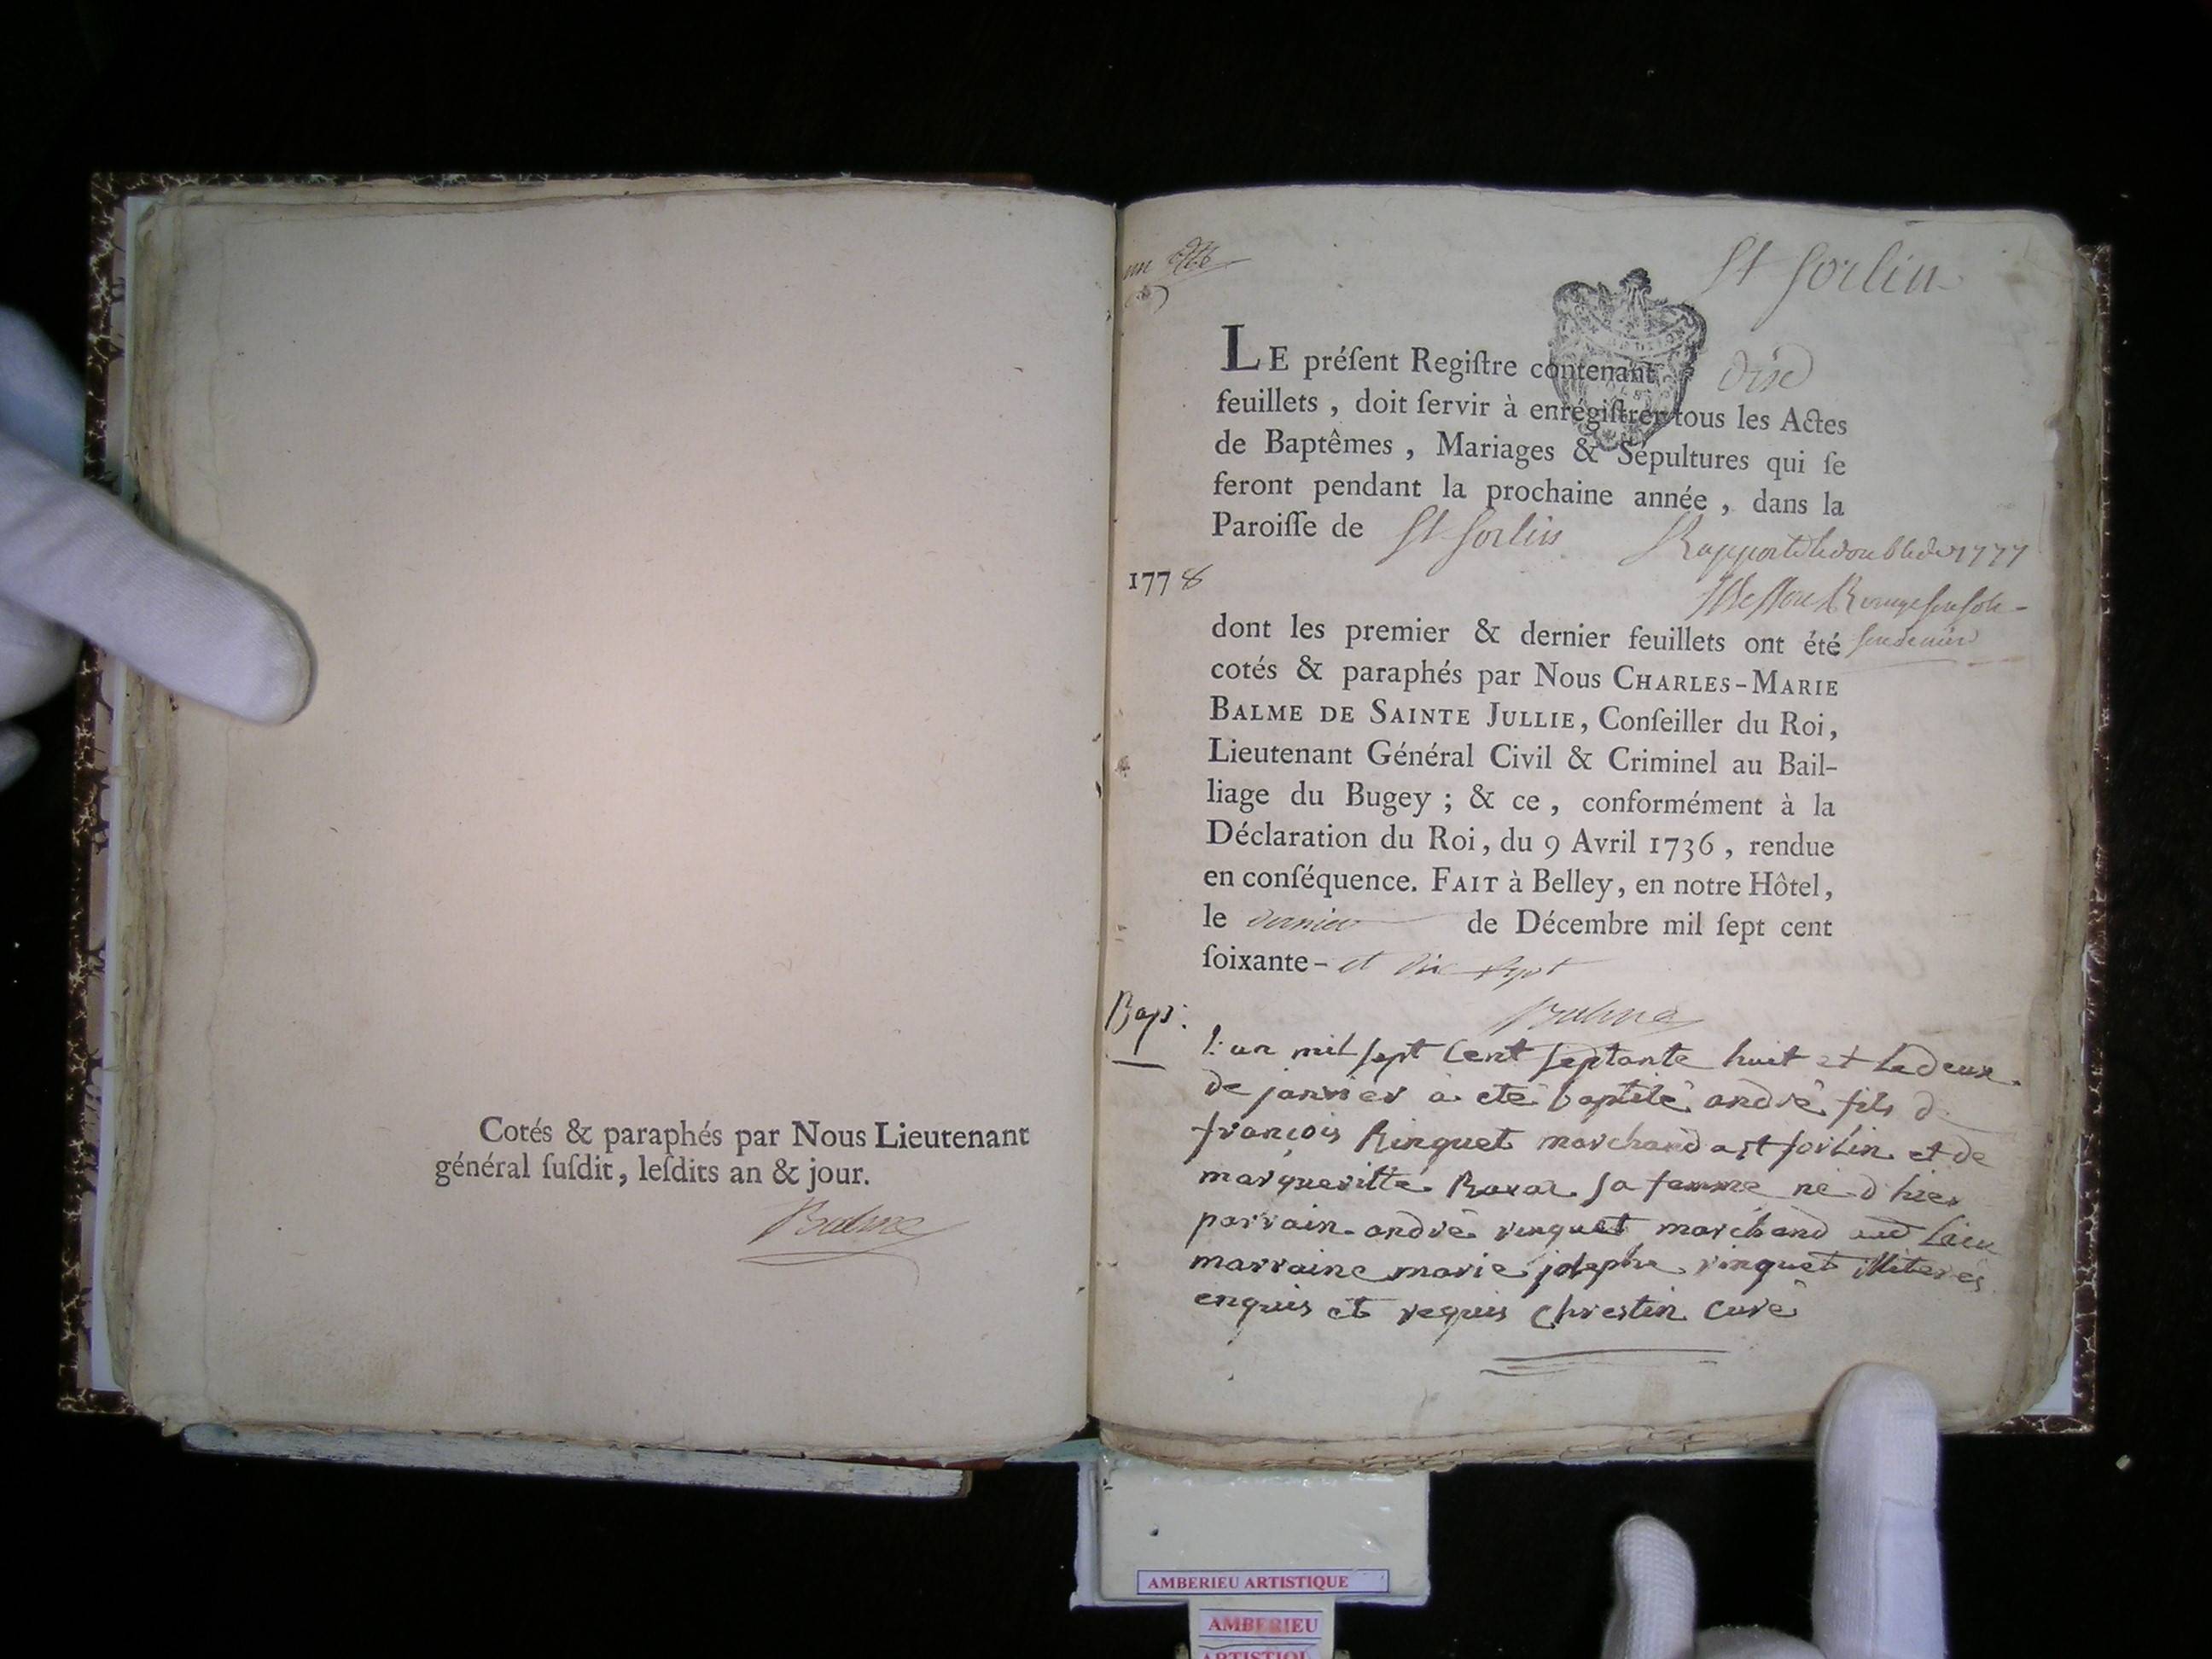 Cotés & paraphés par Nous Lieutenant
général ſuſdit, leſdits an & jour.
Balme
St Sorlin
LE préſent Regiſtre contenant dix
feuillets, doit ſervir à enrégiſtrer tous les Actes
de Baptêmes, Mariages & Sépultures qui ſe
feront pendant la prochaine année, dans la
Paroiſſe de St Sorlin
1778
dont les premier & dernier feuillets ont été
cotés & paraphés par Nous CHARLES-MARIE
BALME DE SAINTE JULLIE, Conſeiller du Roi,
Lieutenant Général Civil & Criminel au Bail-
liage du Bugey; & ce, conformément à la
Déclaration du Roi, du 9 Avril 1736, rendue
en conſéquence. FAIT à Belley, en notre Hôtel,
le dernier de Décembre mil ſept cent
ſoixante- et dix sept
Balme
Bap:
l'an mil sept cent septante huit et le deux
de janvier a eté baptisé andré fils de
françois Ringuet marchand a st sorlin et de
margueritte sa femme né d'hier
parrain andré ringuet marchand aud lieu
marraine marie josephe ringuet illiteres
enquis et requis Chrestin curé
AMBERIEU ARTISTIQUE
AMBERIEU
ARTISTIQU